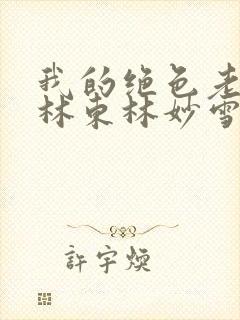 我的绝色老
林东林妙雪
許宇燠